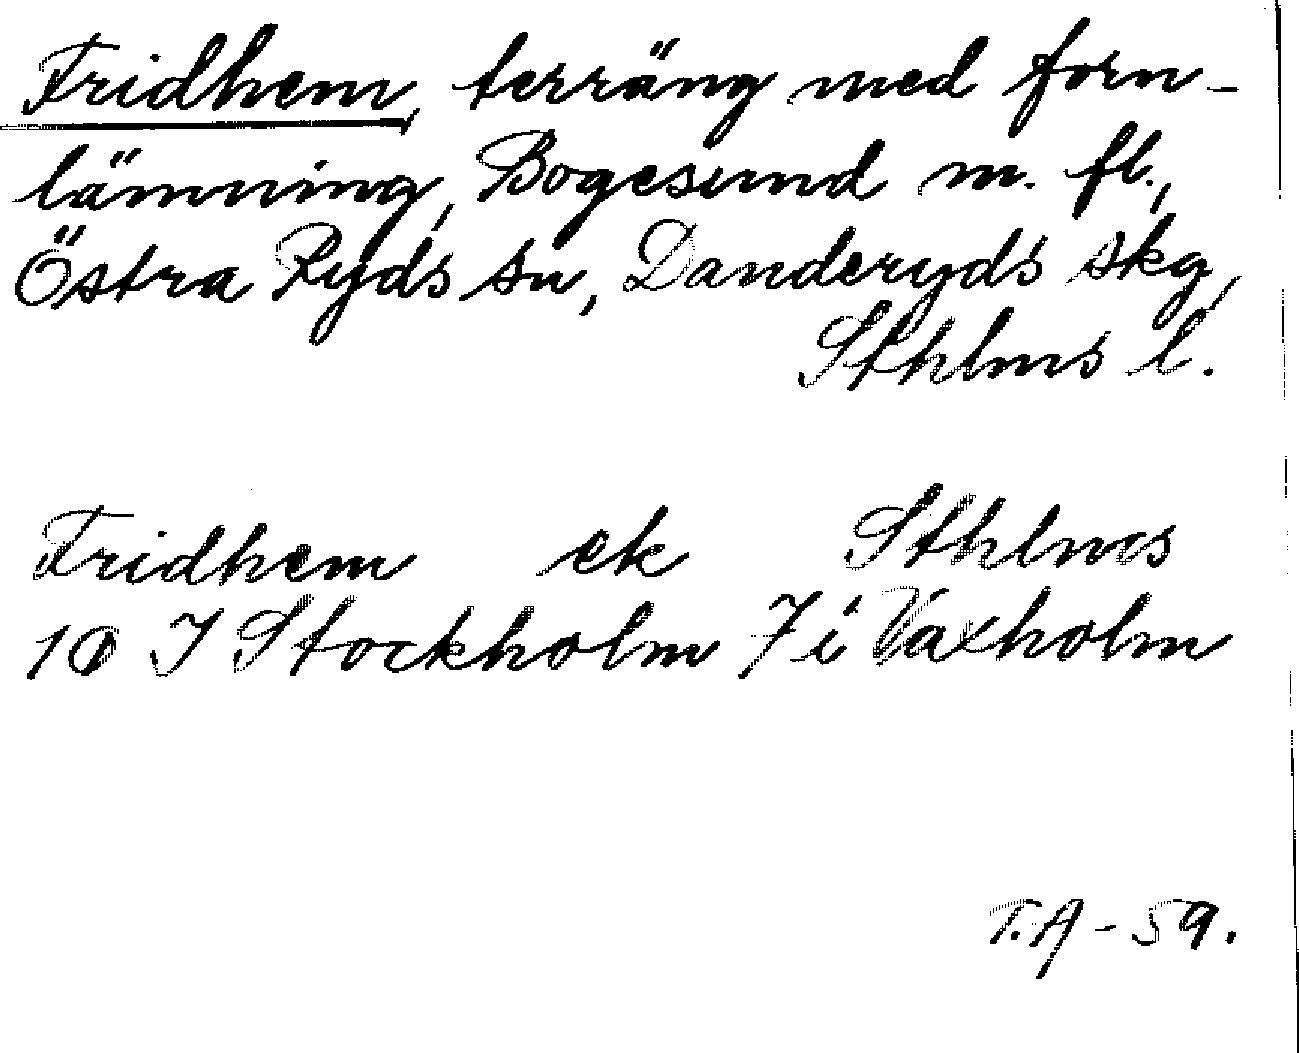 Fridhem, terräng med forn-
lämning, Bogesund m. fl.,
Östra Ryds sn, Danderyds skg,
Sthlms l.
Fridhem ek Sthlms
10 I Stockholm 7 i Vaxholm
T.A - 59.